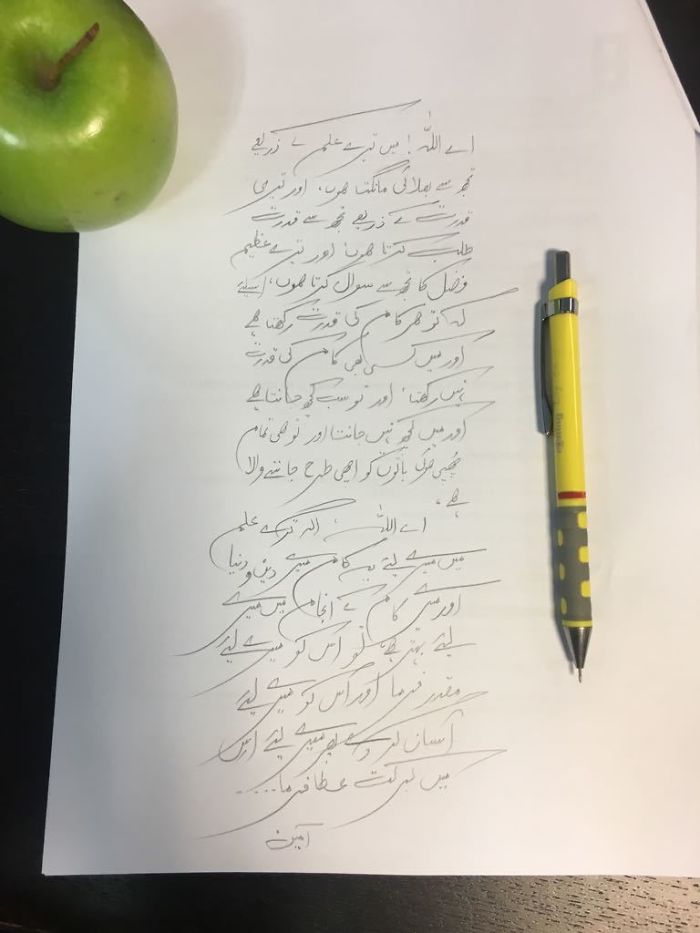 اے اللہ! میں تیرے علم کے ذریعے
تجھ سے بھلائی مانگتا ھوں، اور تیری
قدرت کے ذریعے تجھ سے قدرت
طلب کرتا ھوں اور تیرے عظیم
فضل کا تجھ سے سوال کرتا ھوں، اسلئے
کہ تو ھر کام کی قدرت رکھتا ھے
اور میں کسی بھی کام کی قدرت
نہیں رکھتا، اور تو سب کچھ جانتا ھے
اور میں کچھ نہیں جانتا اور تو ھی تمام
چھپی ھوئی باتوں کو اچھی طرح جاننے والا
ھے۔
اے اللہ، اگر تیرے علم
میں میرے لیئے یہ کام میرے دین و دنیا
اور میرے کام کے انجام میں میرے
لیئے بہتر ھے، تو اس کو میرے لیئے
مقدر فرما اور اس کو میرے لیئے
آسان کر دے پھر میرے لیئے اس
میں برکت عطا فرما....
آمین